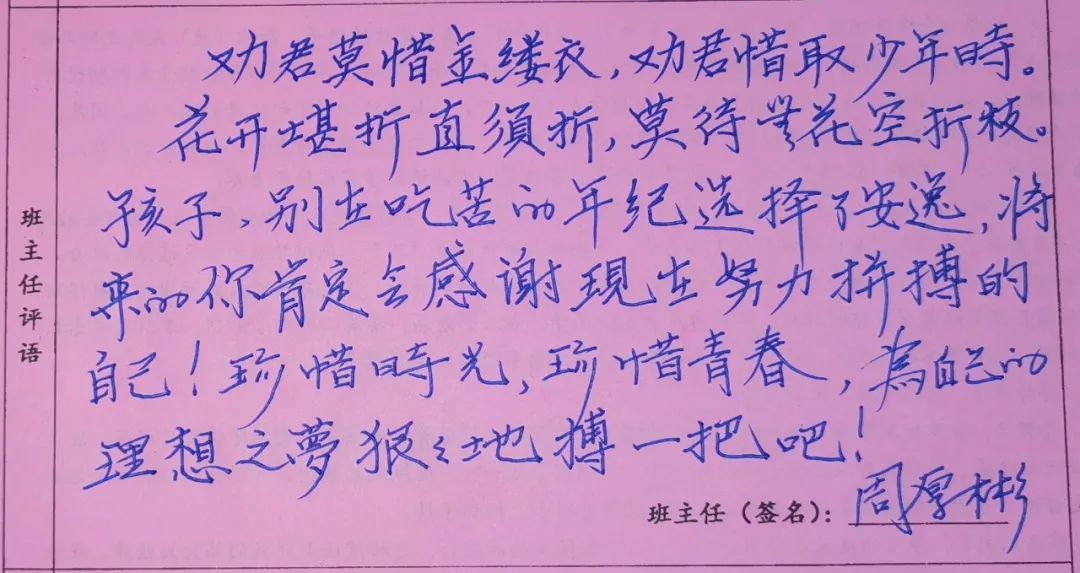 劝君莫惜金缕衣,劝君惜取少年時。
花开堪折直須折,莫待無花空折枝。
孩子,别在吃苦的年纪选择了安逸,将
来的你肯定会感谢現在努力拼搏的
自己!珍惜時光,珍惜青春,為自己的
理想之夢狠々地搏一把吧!
班主任评语
班主任(签名):周厚彬